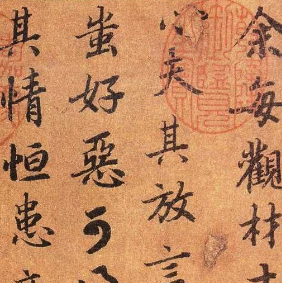 余每觀材士
心夫其放言
蚩好惡可
其情恒患